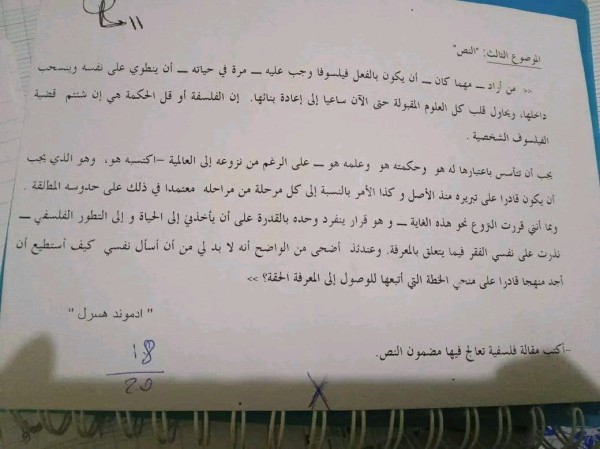 11
الموضوع الثالث: "النص"
<< من أراد ــ مهما كان ــ أن يكون بالفعل فيلسوفا وجب عليه ــ مرة في حياته ــ أن ينطوي على نفسه وينسحب
داخلها، ويحاول قلب كل العلوم المقبولة حتى الآن ساعيا إلى إعادة بنائها. إن الفلسفة أو قل الحكمة هي إن شئتم قضية
الفيلسوف الشخصية .
يجب ان تتأسس باعتبارها له هو وحكمته هو وعلمه هو ــ على الرغم من نزوعه إلى العالمية –اكتسبه هو، وهو الذي يجب
أن يكون قادرا على تبريره منذ الأصل و كذا الأمر بالنسبة إلى كل مرحلة من مراحله معتمدا في ذلك على حدوسه المطالقة .
وبما أنني قررت النزوع نحو هذه الغاية ــ و هو قرار ينفرد وحده بالقدرة على أن يأخذني إلى الحياة و إلى التطور الفلسفي ــ
نذرت على نفسي الفقر فيما يتعلق بالمعرفة. وعندئذ أضحى من الواضح أنه لا بد لي من أن أسأل نفسي كيف أستطيع أن
أجد منهجا قادرا على منحي الخطة التي أتبعها للوصول إلى المعرفة الحقة؟ >>
" ادموند هسرل "
–أكتب مقالة فلسفية تعالج فيها مضمون النص.
18
20